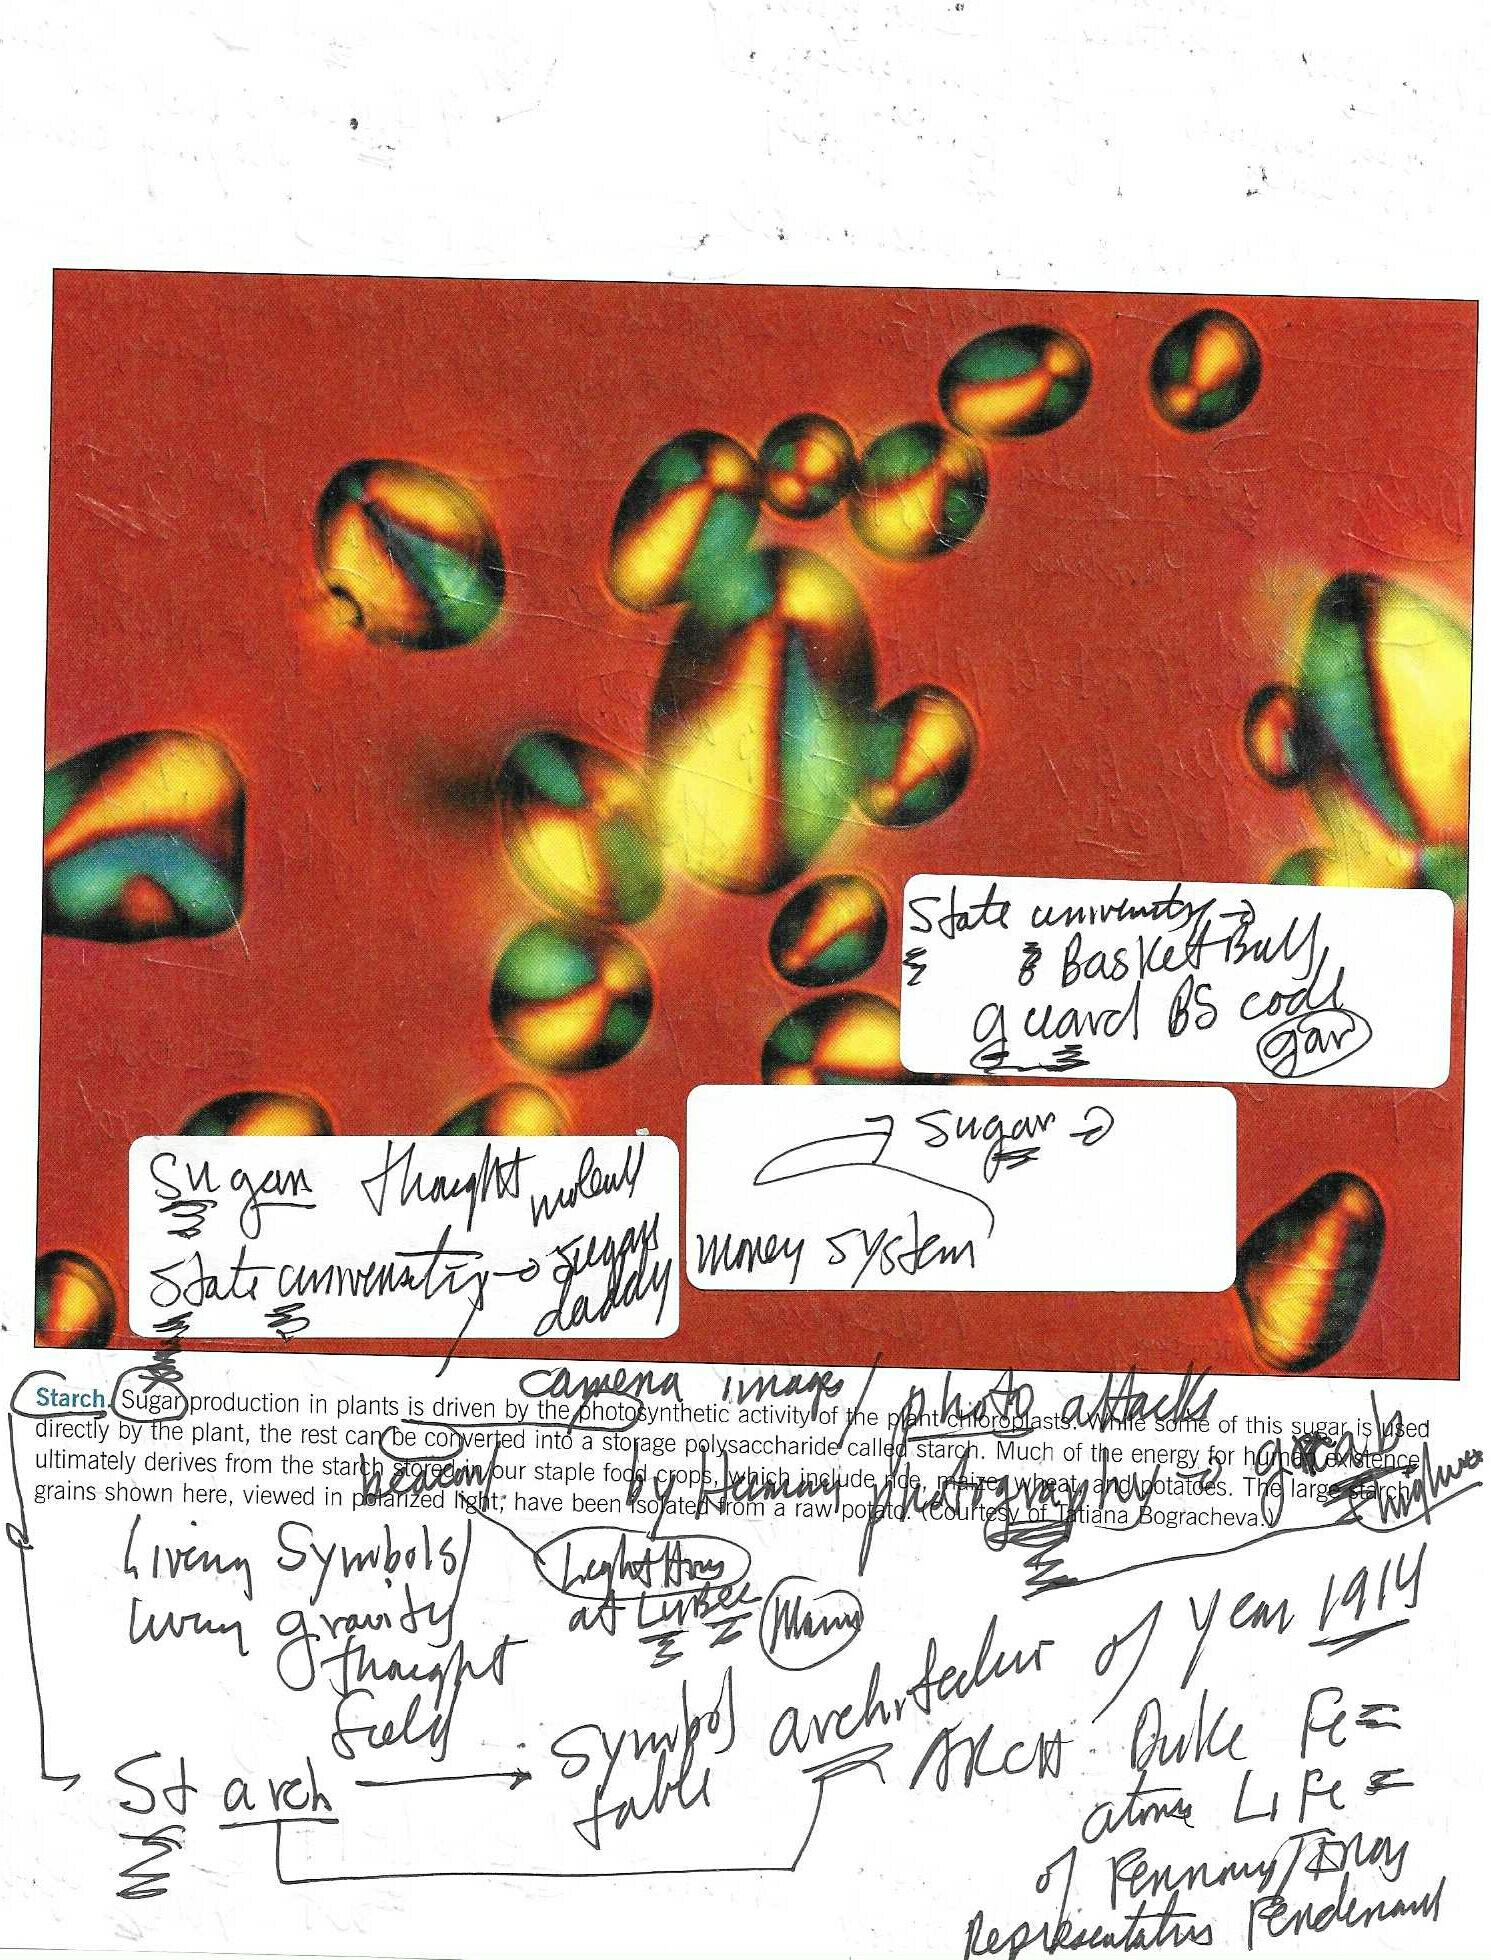 State university →
BasketBall
guard BS code
gar
→ Sugar →
money system
Sugar thought
State university → sugar
daddy
camera images / photo attacks
Starch. Sugar production in plants is driven by the photosynthetic activity of the plant chloroplasts. While some of this sugar is used
directly by the plant, the rest can be converted into a storage polysaccharide called starch. Much of the energy for human existence
ultimately derives from the starch stored in our staple food crops, which include rice, maize, wheat, and potatoes. The large starch
grains shown here, viewed in polarized light, have been isolated from a raw potato. (Courtesy of Tatiana Bogracheva.)
beacon by Human photography → grab
Living Symbols
living gravity
thought
field
at LuBec
St arch → Symbol
table
architecture of year 1914
ARCH Duke Fe=
Li Fe=
of
Representatives